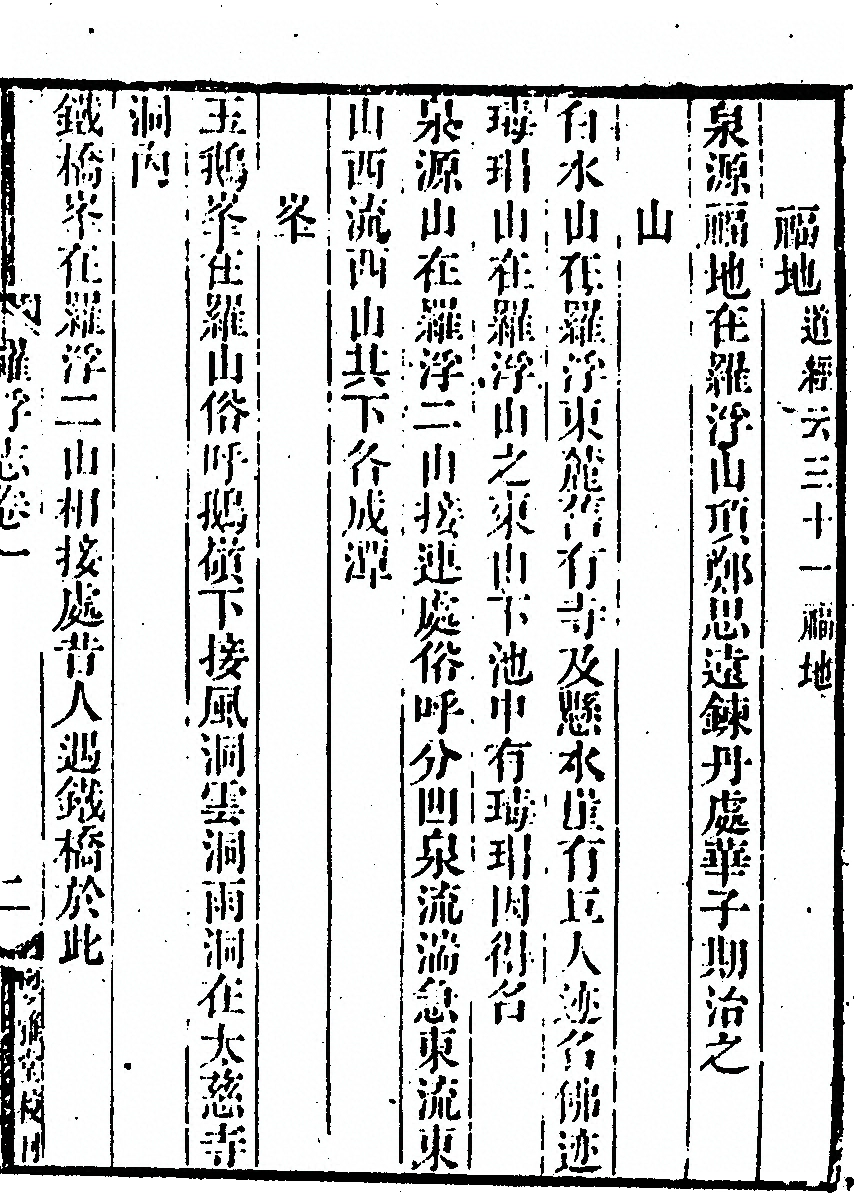 福地道經云三十一福地
泉源福地在羅浮山頂鄭思遠鍊丹處華子期治之
山
白水山在羅浮東麓舊有寺及懸水崖有巨人迹名佛迹
瑇瑁山在羅浮山之東山下池中有瑇瑁因得名
泉源山在羅浮二山接連處俗呼分凹泉流湍急東流東
山西流西山共下各成潭
峯
玉鵝峯在羅山俗呼鵝嶺下接風洞雲洞雨洞在大慈寺
洞內
鐵橋峯在羅浮二山相接處昔人遇鐵橋於此
羅浮志卷一
二